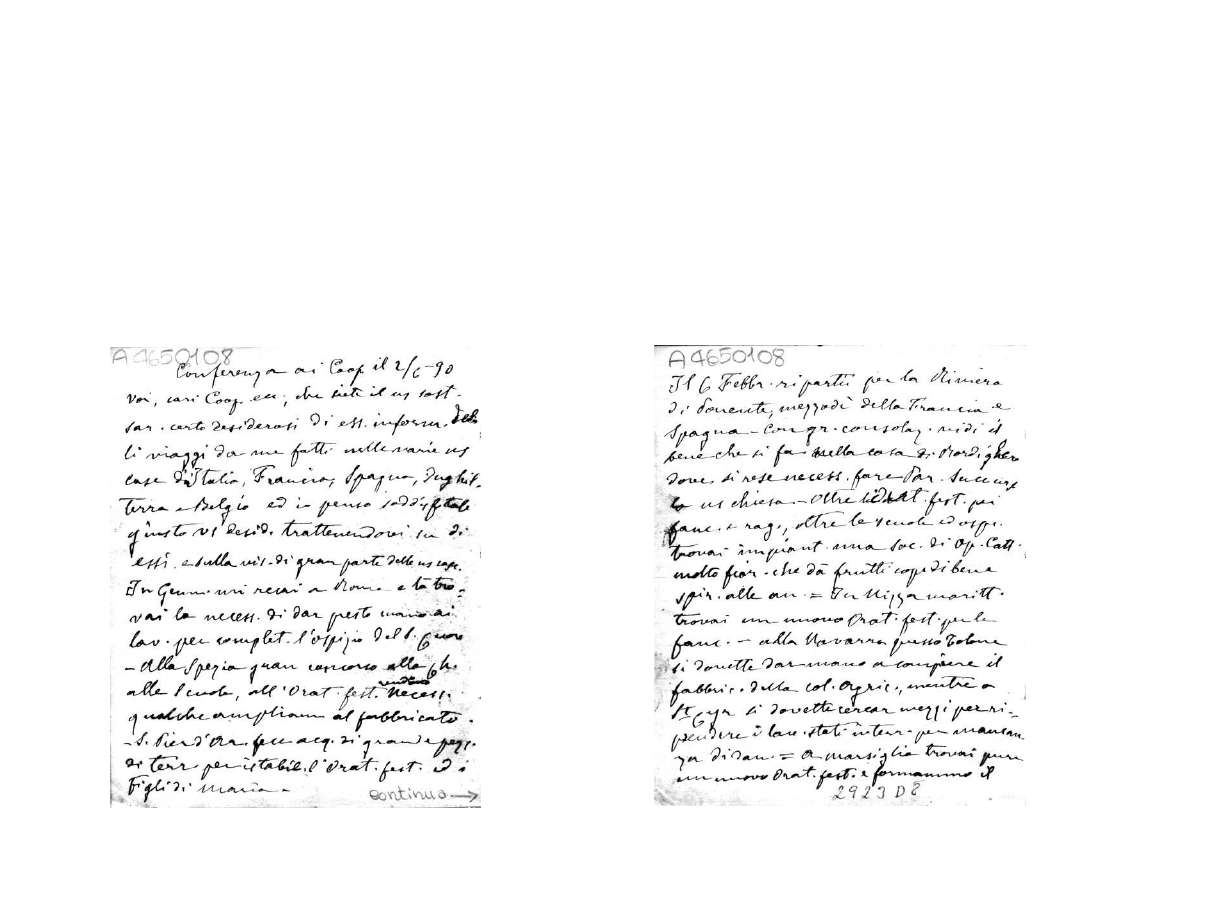 A4650108
Conferenza ai Coop il 2/6-90
Voi, cari Coop. ecc, che siete il ns sost.
sar. certo desiderosi di ess. inform.
li viaggi da me fatti nelle varie ns
case d'Italia, Francia, Spagna, Inghil-
terra e Belgio ed io penso soddisf
questo vs desid. trattenendovi su di
essi e sulla vis. di gran parte delle ns case.
In Genn. mi recai a Roma e là tro-
vai la necess. di dar presto mano ai
lav. per complet. l'ospizio del S. Cuore
- Alla Spezia gran concorso alla Ch.
alle Scuole, all'Orat. fest. rendono necess.
qualche ampliam al fabbricato.
- S. Pier d'Ar. fece acq. di grande pezz.
di terr per istabil. l'Orat. fest. ed i
Figli di Maria -
continua →
A4650108
Il 6 Febbr. ripartii per la Riviera
di Ponente, mezzodì della Francia e
Spagna - Con gr. consolaz. vidi il
bene che si fa nella casa di Bordighera
dove si rese necess. fare Par. Succurs
la ns chiesa - Oltre fest. pei
fanc. e rag., oltre le scuole ed ospi.
trovai impiant. una Soc. di Op. Catt.
molto fior. che dà frutti cop di bene
spir. alle an. = In Nizza maritt.
trovai un nuovo Orat. fest. per le
fanc. - alla Navarra presso Tolone
si dovette dar mano a compiere il
fabbric. della col. Agric., mentre a
St Cyr si dovette cercar mezzi per ri-
prendere i lav. stati interr. per mancan
za di dan. = A Marsiglia trovai pure
un nuovo Orat. fest. e formammo il
2923 D8